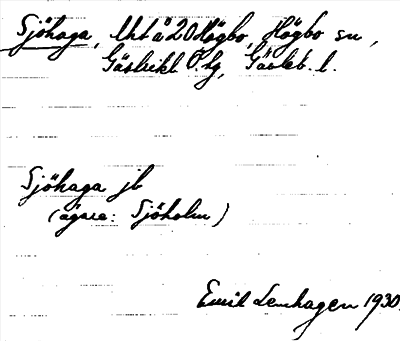 Sjöhaga, Uti å 20 Högbo, Högbo sn,
Gästrikl. Ö. tg, Gävleb. l.
Sjöhaga jb
(ägare: Sjöholm)
Emil Lenhagen 1930.